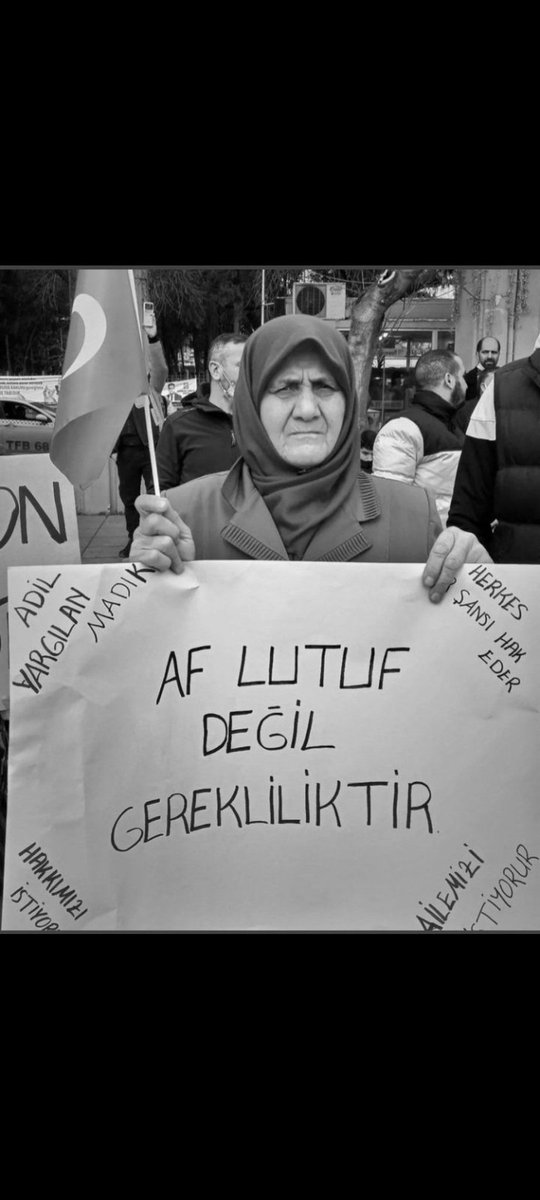 TFB 68
ON
ADİL
YARGILAN
MADIK
HERKES
ŞANSI HAK
EDER
AF LUTUF
DEĞİL
GEREKLİLİKTİR.
HAKKIMIZI
İSTİYOR
AİLEMİZİ
İSTİYORUR